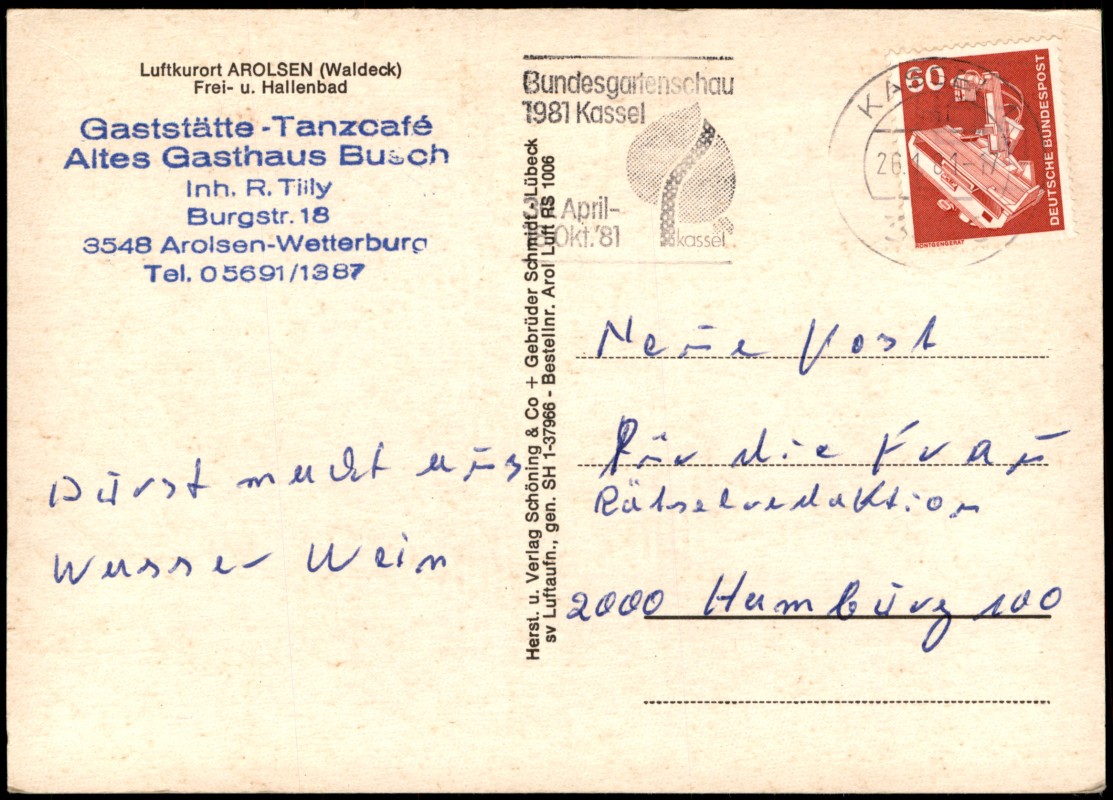 Luftkurort AROLSEN (Waldeck)
Frei- u. Hallenbad
Gaststätte-Tanzcafé
Altes Gasthaus Busch
Inh. R. Tilly
Burgstr. 18
3548 Arolsen-Wetterburg
Tel. 05691/1387
Durst macht aus
Wasser Wein
Herst. u. Verlag Schöning & Co + Gebrüder Schmidt - Lübeck
sv Luftaufn., gen. SH 1-37966 - Bestellnr. Arol Luft RS 1006
Bundesgartenschau
1981 Kassel
April-
Okt.'81
kassel
60
DEUTSCHE BUNDESPOST
RÖNTGENGERÄT
Neue Post
Für die Frau
Rätselredaktion
2000 Hamburg 100